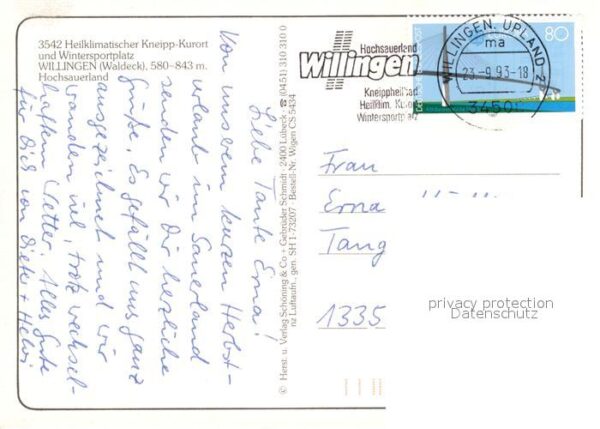 3542 Heilklimatischer Kneipp-Kurort
und Wintersportplatz
WILLINGEN (Waldeck), 580–843 m.
Hochsauerland
Hochsauerland
Willingen
Kneippheilbad
Heilklim. Kurort
Wintersportplatz
WILLINGEN, UPLAND 2
ma
23.-9.93-18
3450
80
Liebe Tante Erna!
Von unserem kurzen Herbst-
urlaub im Sauerland
senden wir Dir herzliche
Grüße. Es gefällt uns ganz
ausgezeichnet und wir
wandern viel, trotz wechsel-
haftem Wetter. Alles Gute
für Dich von Dieter +
© Herst. u. Verlag Schöning & Co + Gebrüder Schmidt · 2400 Lübeck ☎ (0451) 310 310 0
nz Luftaufn., gen. SH 1-73207 · Bestell-Nr. Wigen CS 5434
Frau
Erna
Tang
1335
privacy protection
Datenschutz